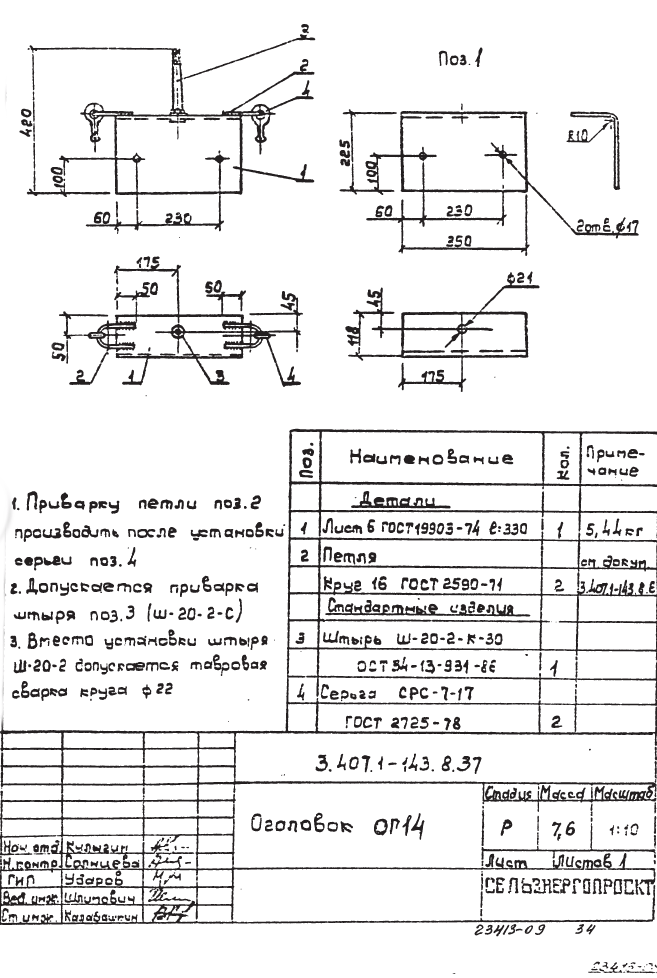 2
Поз.1
2
4
420
R10
225
100
1
100
60
230
60
230
2отв. ф17
350
175
ф21
50
50
45
45
50
118
2
1
3
4
175
1. Приварку петли поз.2
производить после установки
серьги поз.4
2. Допускается приварка
штыря поз.3 (Ш-20-2-С)
3. Вместо установки штыря
Ш-20-2 допускается тавровая
сварка круга ф22
Поз. Наименование Кол. Приме-
чание
Детали
1 Лист 6 ГОСТ19903-74 ℓ=330 1 5,44кг
2 Петля см. докум.
Круг 16 ГОСТ 2590-71 2 3.407.1-143.8.
Стандартные изделия
3 Штырь Ш-20-2-К-30
ОСТ34-13-931-86 1
4 Серьга СРС-7-17
ГОСТ 2725-78 2
3.407.1-143.8.37
Оголовок ОГ14
Стадия Масса Масштаб
Р 7,6 1:10
Лист Листов 1
СЕЛЬЭНЕРГОПРОЕКТ
Нач. отд. Кулыгин
Н.контр. Солнцева
ГИП Ударов
Вед. инж. Шлимович
Ст. инж. Калабашкин
23413-09 34